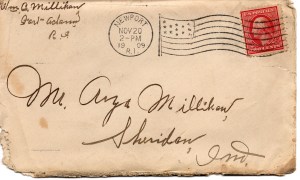 Wm A. Millikan
Fort Adams
R.I.
NEWPORT
NOV 20
2-PM
1909
R.I.
Mr. Arza Millikan,
Sheridan,
Ind.